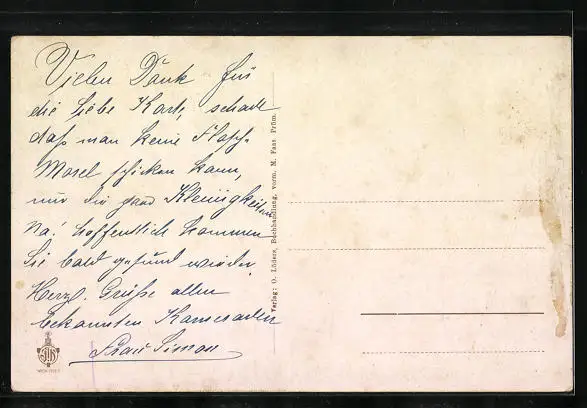 Vielen Dank für
die liebe Karte, schade
daß man keine Flasch.
Mosel schicken kann,
nur die paar Kleinigkeiten
Na! hoffentlich kommen
Sie bald gesund wieder.
Herzl. Grüße allen
bekannten Kameraden
Frau Simon
Verlag: O. Lüders, Buchhandlung, vorm. M. Faas Prüm.